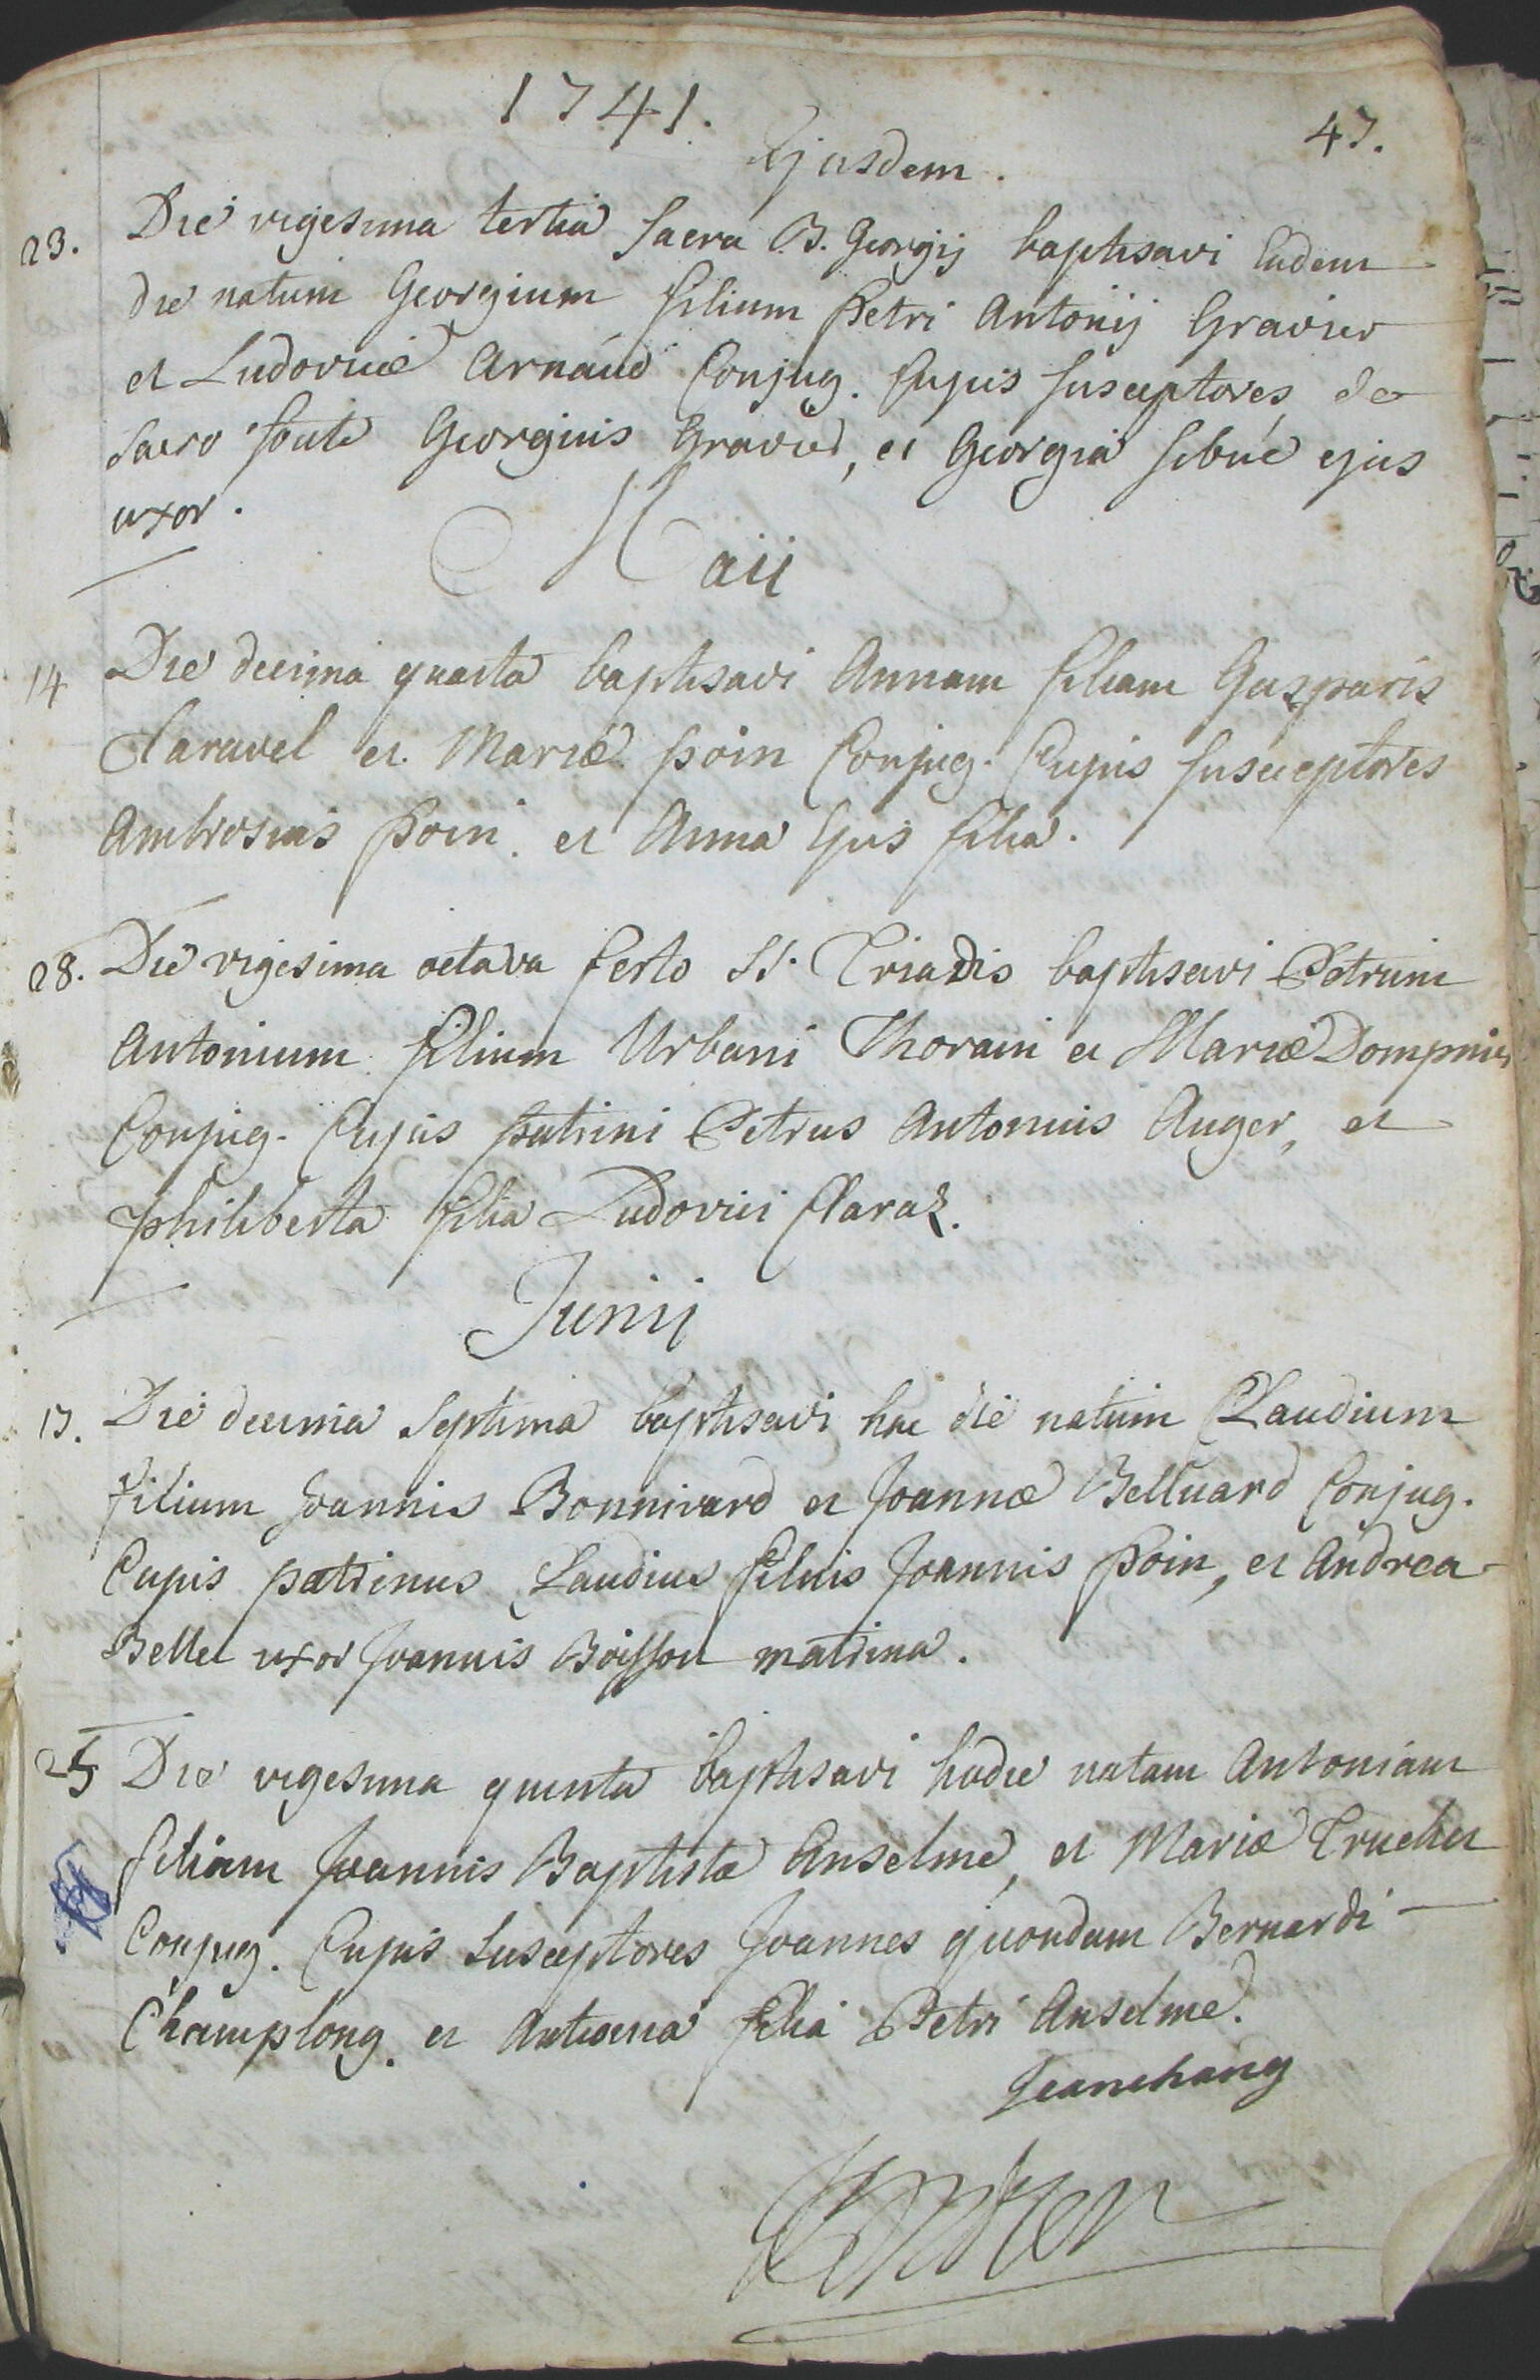 1741.
47.
Ejusdem.
23. Die vigesima tertia sacra B. Georgij baptisavi Eadem
die natum Georgium filium Petri Antonij Gravier
et Ludovicæ Arnaud Conjug. Cujus susceptores de
sacro fonte Georgius Gravier, et Georgia Sibué ejus
uxor.
Maii
14 Die decima quarta baptisavi Annam filiam Gasparis
Claravel et Mariæ Poin Conjug. Cujus susceptores
Ambrosius Poin. et Anna Ejus filia.
28. Die vigesima octava festo SS. Triadis baptisavi Petrum
Antonium filium Urbani Thorain et Mariæ Dompnier
Conjug. Cujus patrini Petrus Antonius Auger, et
philiberta filia Ludovici Claraz.
Junij
17. Die decima septima baptisavi hac die natum Claudium
filium Joannis Bonnivard et Joannæ Belluard Conjug.
Cujus patrinus Claudius filius Joannis Poin, et Andrea
Bellet uxor Joannis Boisson matrina.
25 Die vigesima quinta baptisavi hodie natam Antoniam
filiam Joannis Baptistæ Anselme, et Mariæ Truchet
Conjug. Cujus susceptores Joannes quondam Bernardi
Champlong. et Antonia filia Petri Anselme.